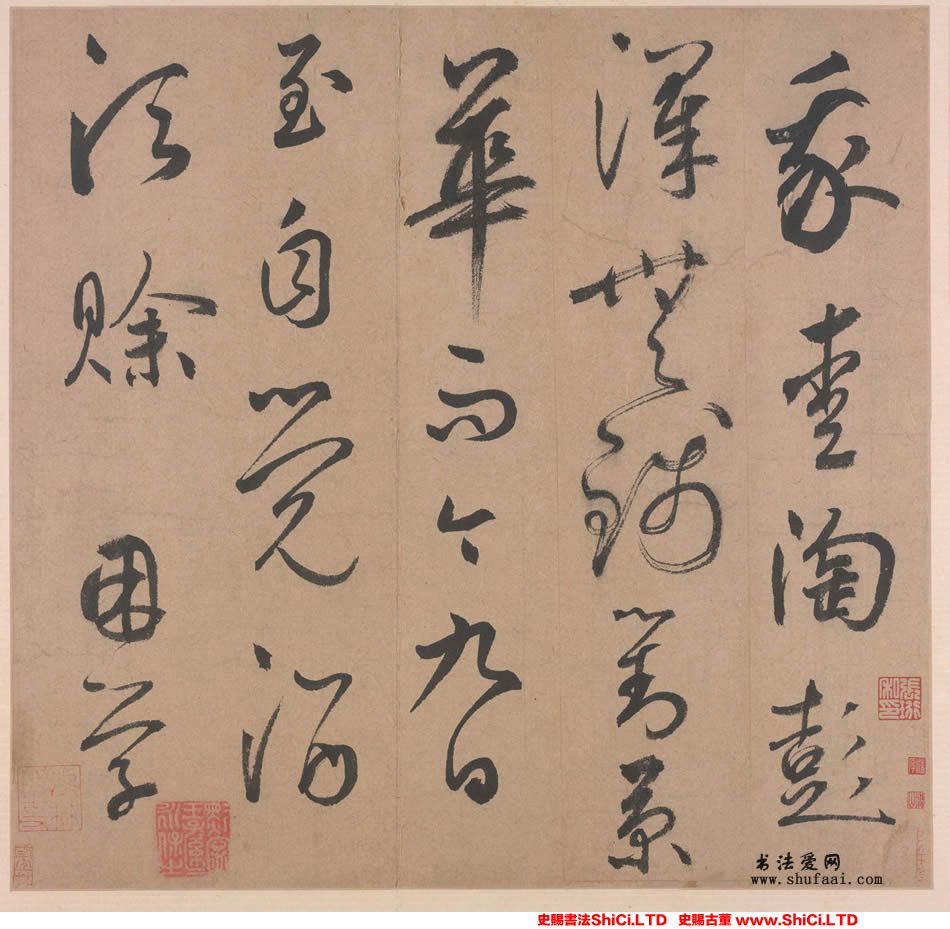 我愛陶彭
澤無錢對菊
華而今九日
至自覺酒
須賒
困學
張珩私印
书法爱网
www.shufaai.com
史賜書法ShiCi.LTD 史賜古董 www.ShiCi.LTD